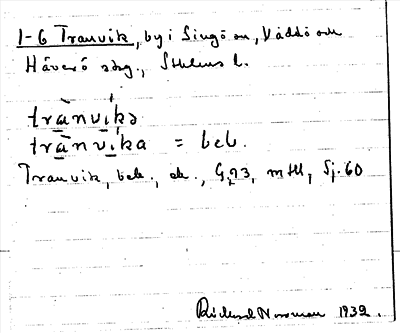 1-6 Tranvik, by i Singö sn, Väddö och
Häverö sdg., Sthlms l.
trànvíkə
trànvika = beb.
Tranvik, beb., ek., G 93, mtl, Sj. 60
Richard Norrman 1932.